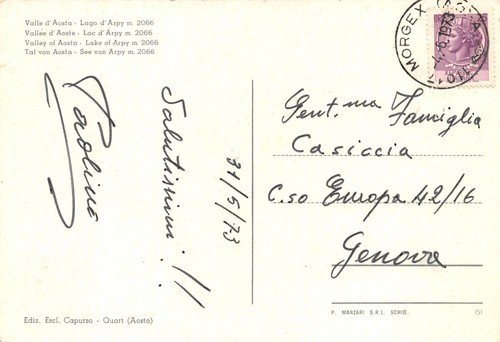 Valle d'Aosta - Lago d'Arpy m. 2066
Vallée d'Aoste - Lac d'Arpy m. 2066
Valley of Aosta - Lake of Arpy m. 2066
Tal von Aosta - See von Arpy m. 2066
MORGEX (AOSTA)
11017
Gent.ma Famiglia
Casiccia
C.so Europa 42/16
Genova
31/5/73
Salutissimi!!
Paolino
Ediz. Escl. Capurso - Quart (Aosta)
P. MARZARI S.R.L. SCHIO
151